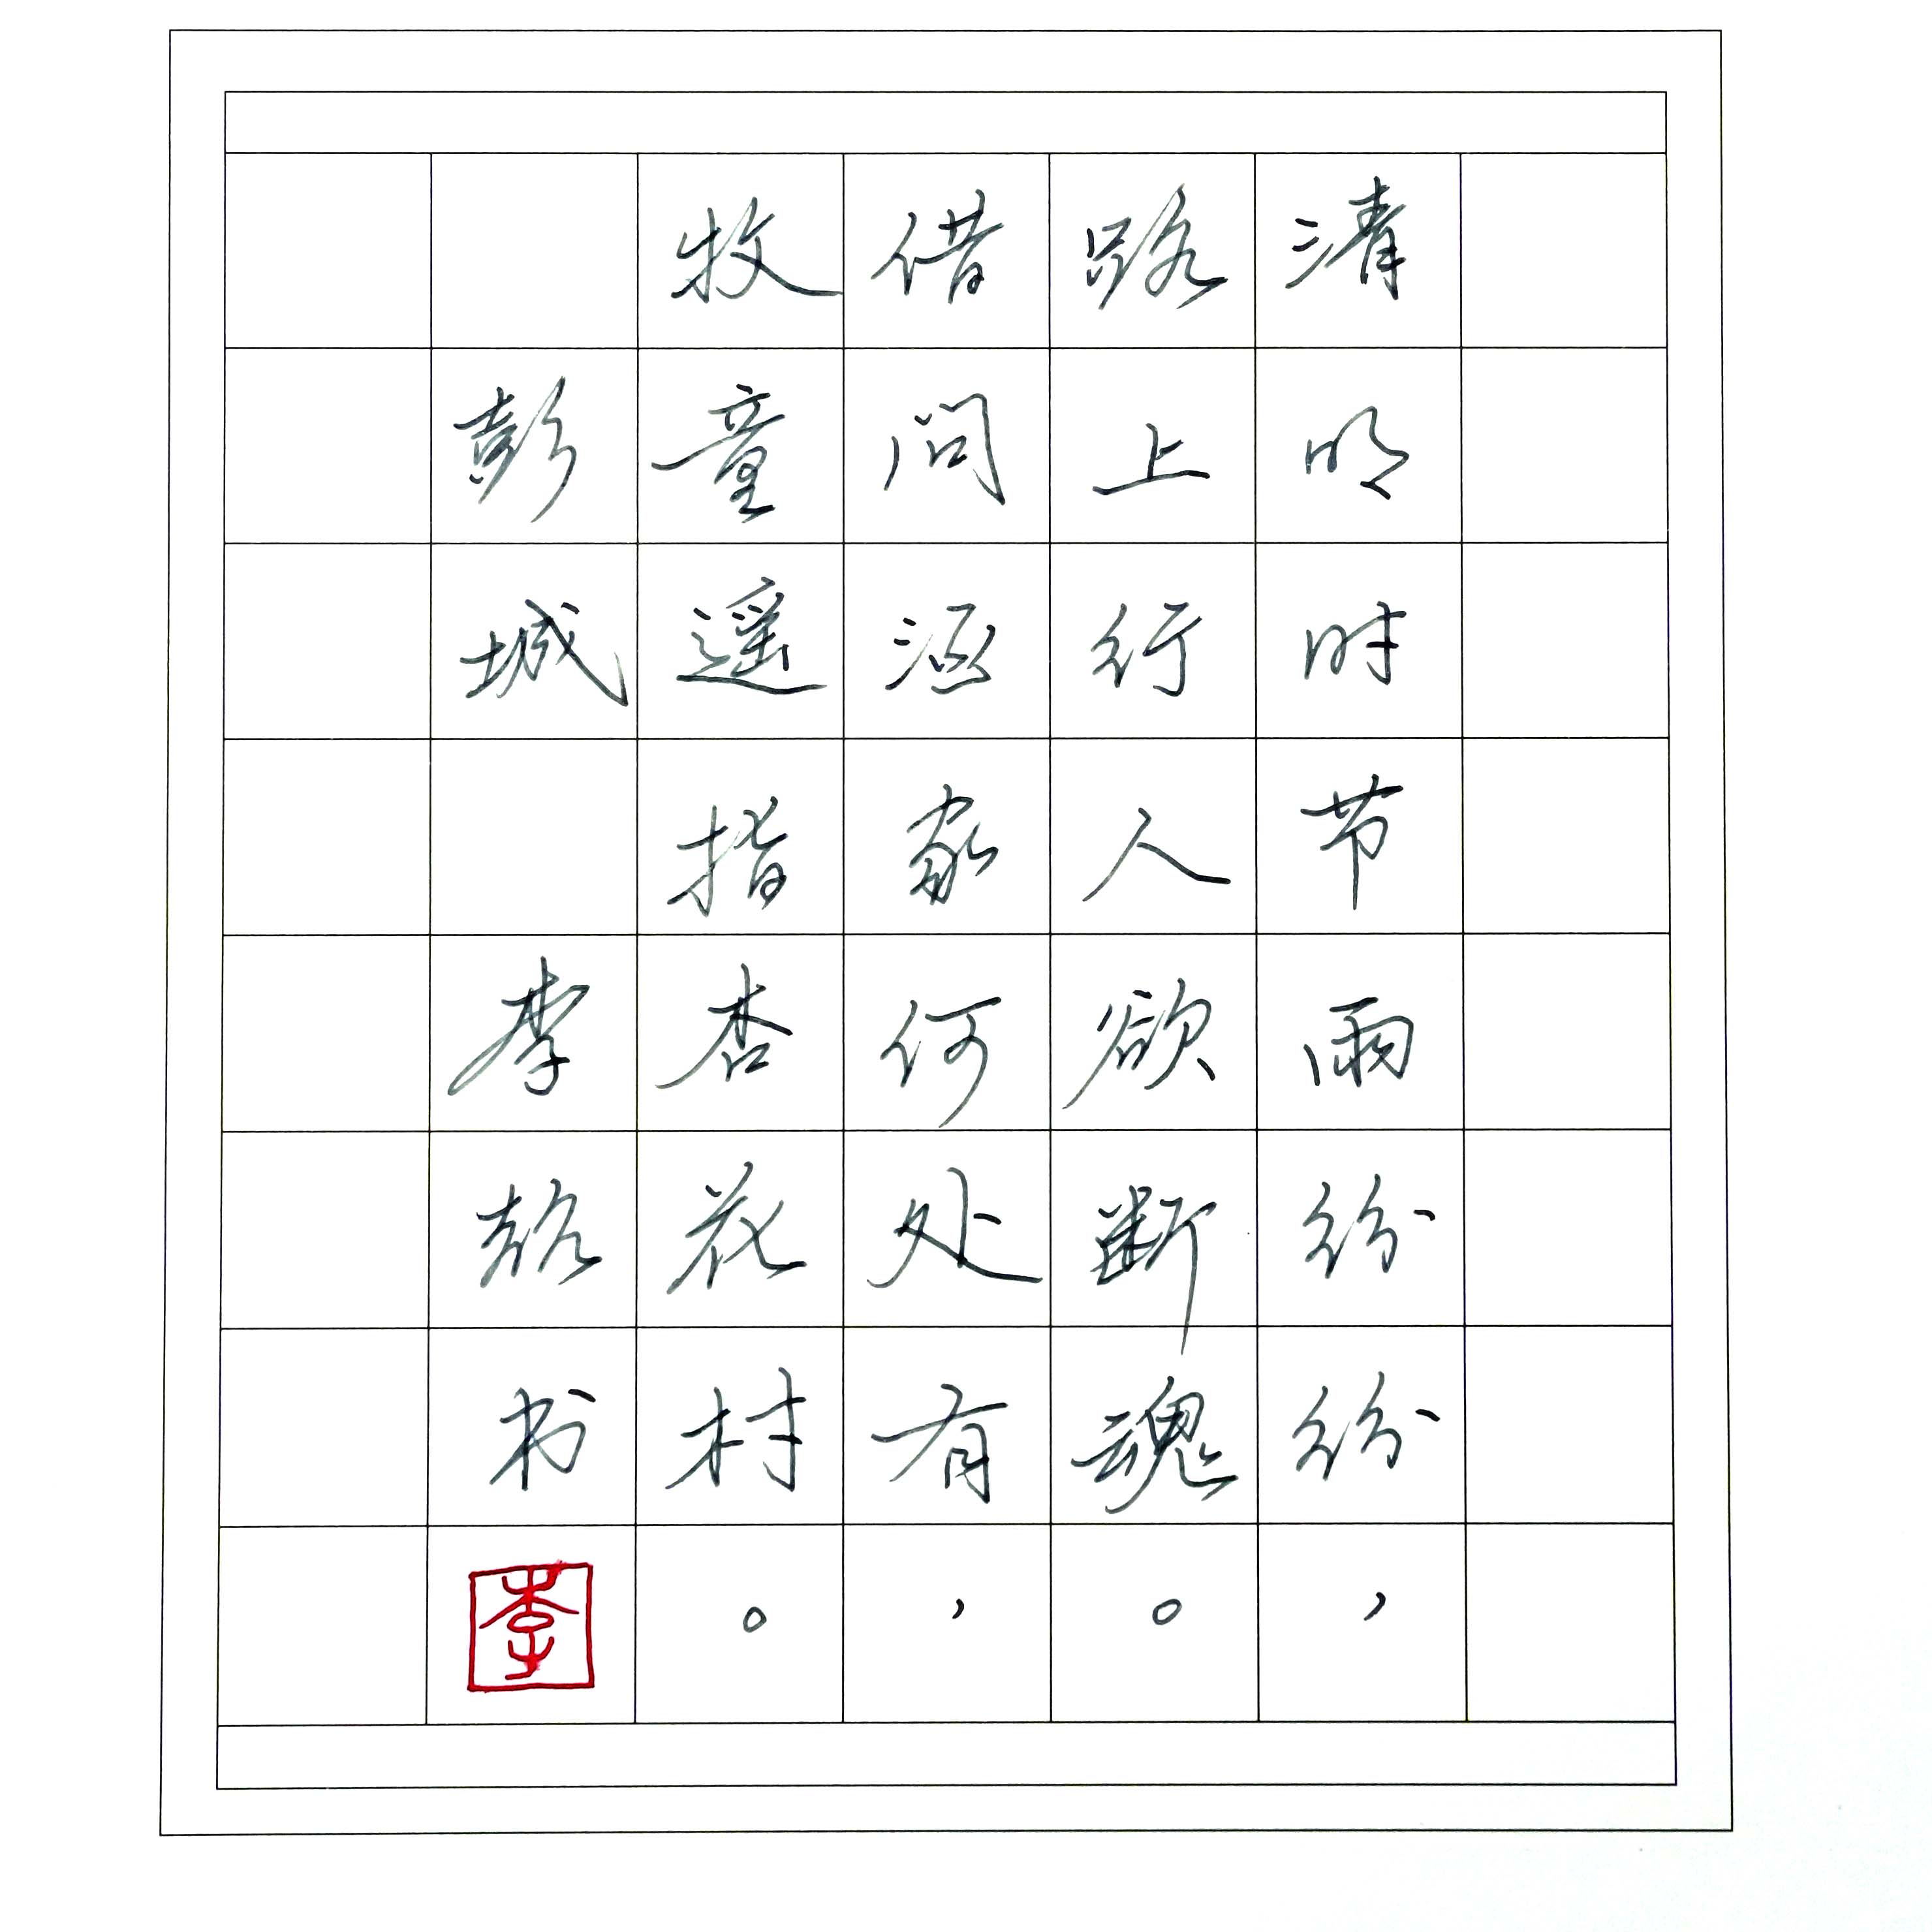 清明时节雨纷纷，
路上行人欲断魂。
借问酒家何处有，
牧童遥指杏花村。
彭城 李书
李